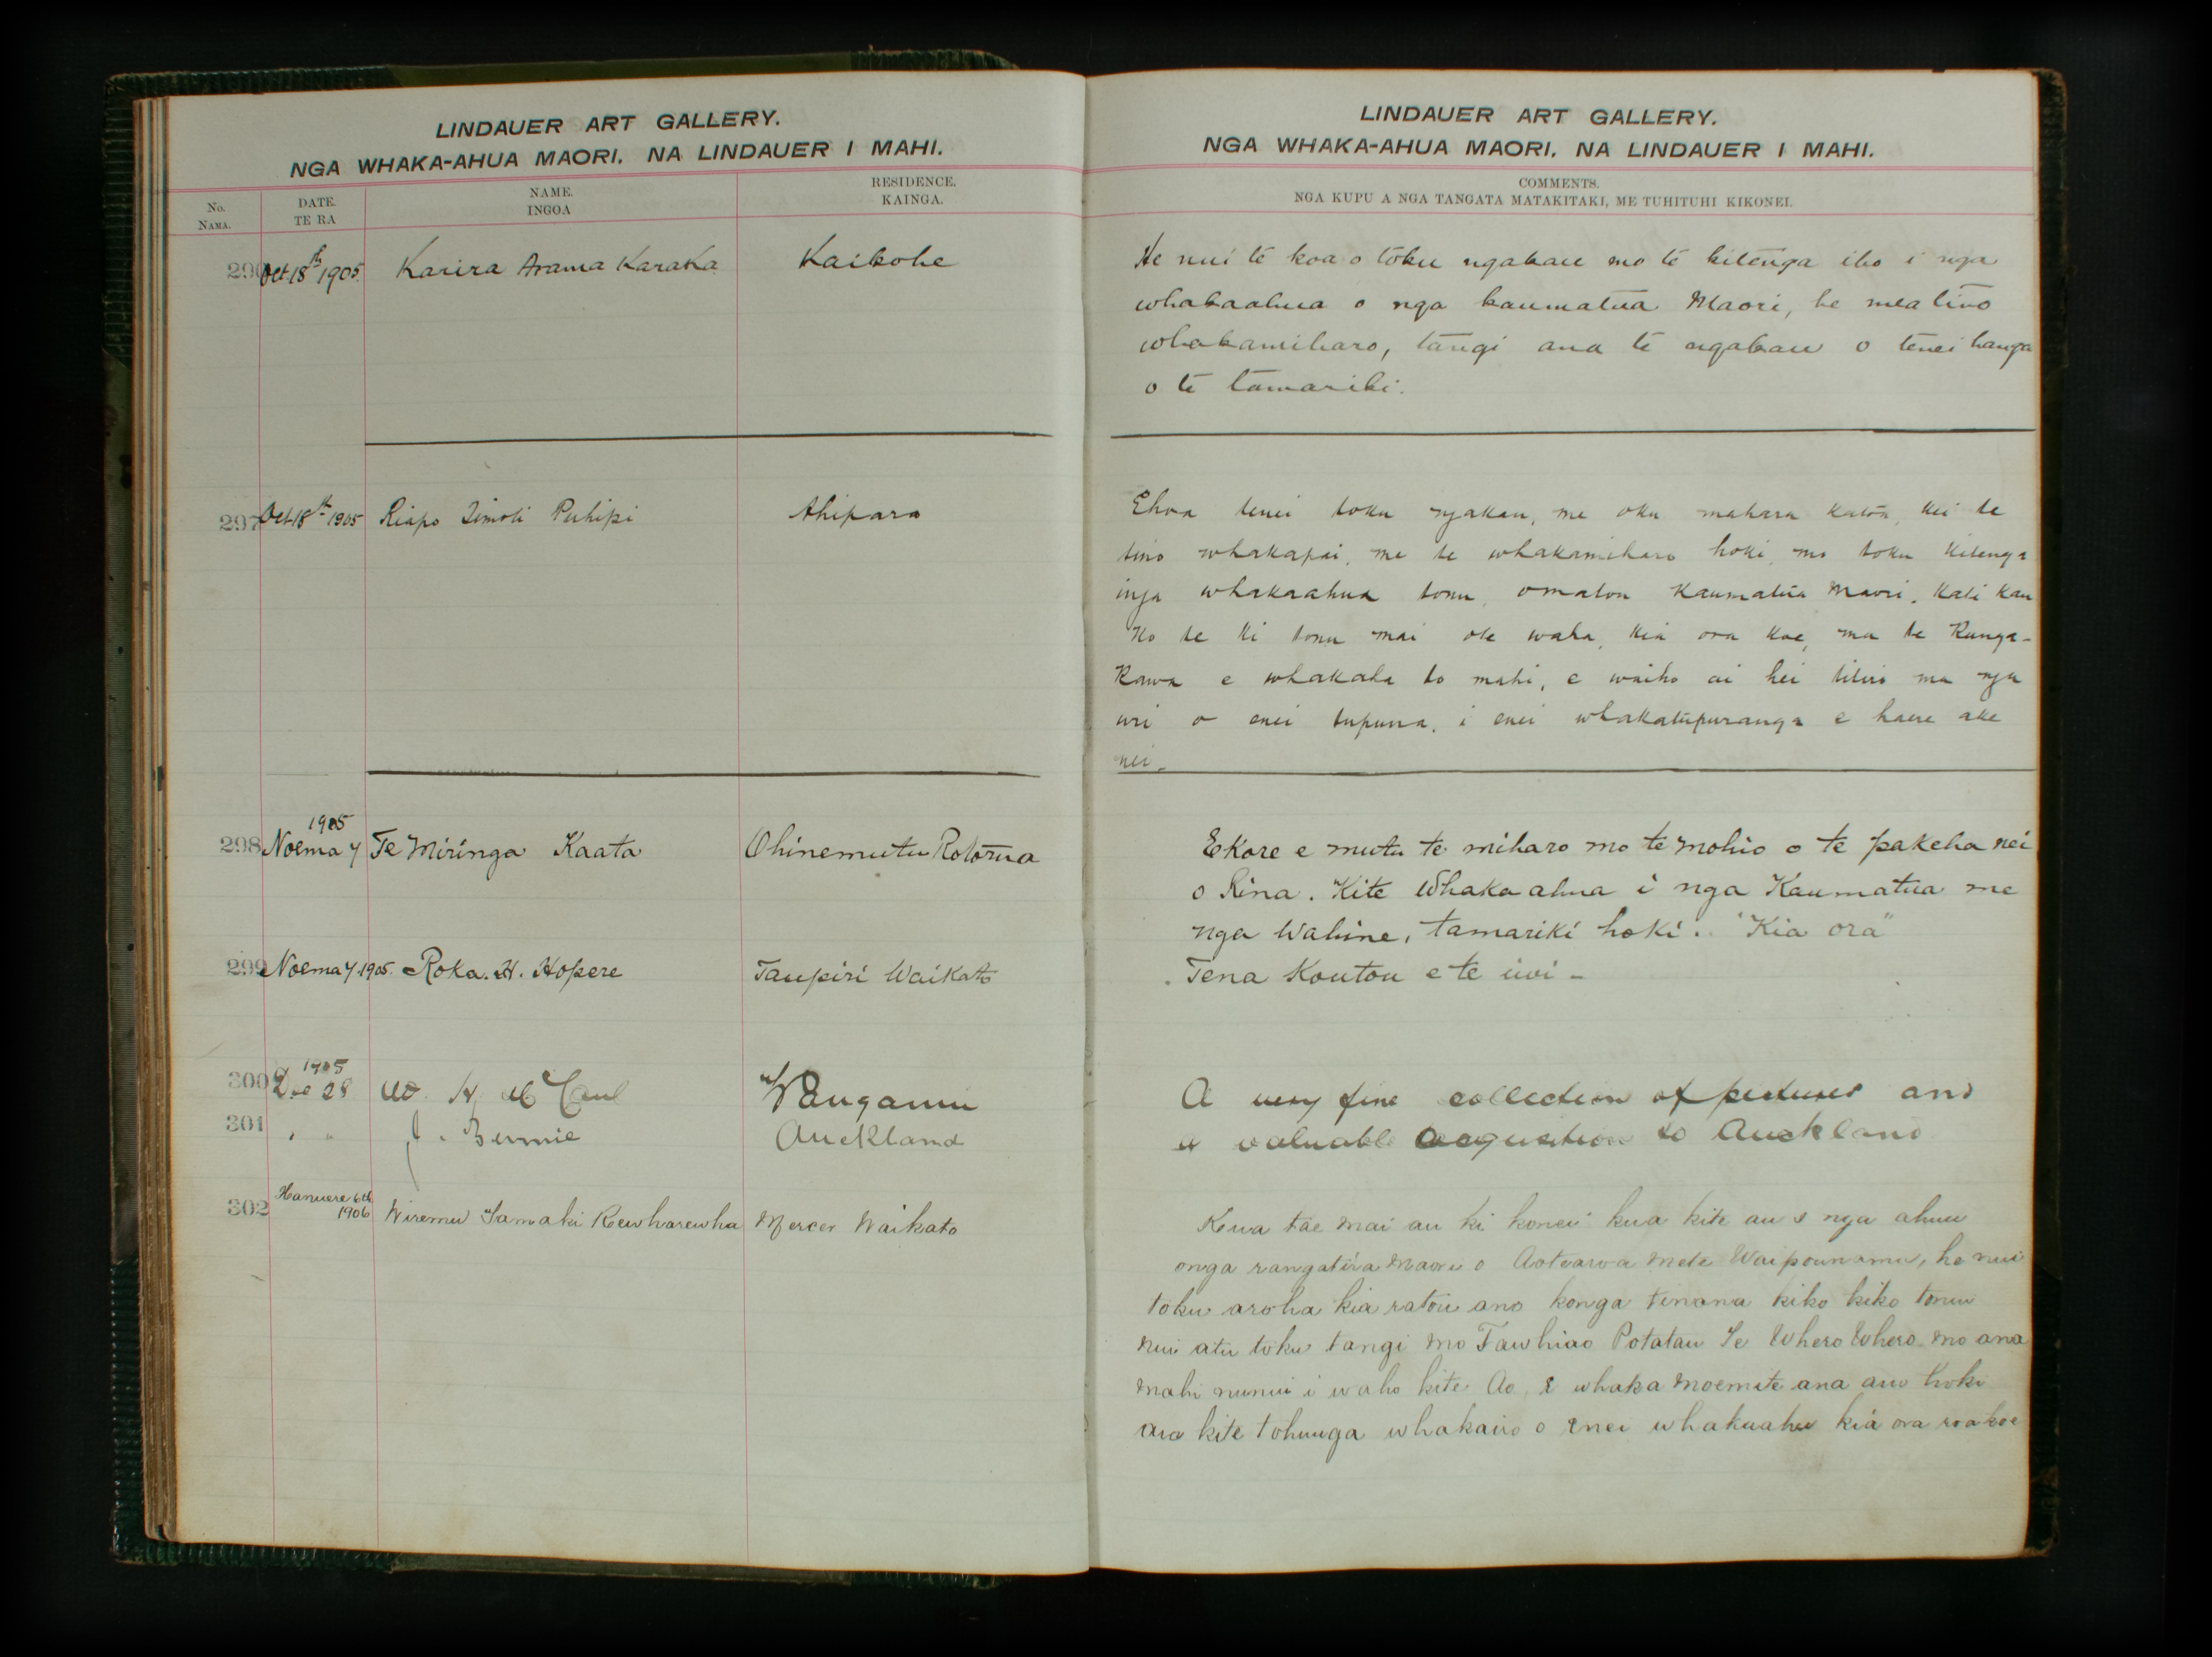 LINDAUER ART GALLERY.
NGA WHAKA-AHUA MAORI. NA LINDAUER I MAHI.
No. DATE. NAME. RESIDENCE.
NAMA. TE RA INGOA KAINGA.
296 Oct 18th 1905 Karira Arama Karaka Kaikohe
297 Oct 18th 1905 Riapo Timoti Puhipi Ahipara
1905
298 Noema 7 Te Miringa Kaata Ohinemutu Rotorua
299 Noema 7. 1905. Roka. H. Hopere Taupiri Waikato
1905
300 Dec 28 W. H. McCaul Wanganui
301 " " J. Bennie Auckland
Hanuere 6th
302 1906 Wiremu Tamaki Rewharewha Mercer Waikato
LINDAUER ART GALLERY.
NGA WHAKA-AHUA MAORI. NA LINDAUER I MAHI.
COMMENTS.
NGA KUPU A NGA TANGATA MATAKITAKI, ME TUHITUHI KIKONEI.
He nui te koa o toku ngakau mo te kitenga iho i nga
whakaahua o nga kaumatua Maori, he mea tino
whakamiharo, tangi ana te ngakau o tenei hanga
o te tamariki.
Ehoa tenei toku ngakau, me oku mahara katoa, kei te
tino whakapai, me te whakamiharo hoki, mo toku kitenga
inga whakaahua tonu, omatou Kaumatua Maori. Kati kau
ko te ki tonu mai ote waha, kia ora koe, ma te Runga-
Rawa e whakakaha to mahi, e waiho ai hei titiro ma nga
uri o enei tupuna, i enei whakatupuranga e haere ake
nei.
Ekore e mutu te miharo mo te mohio o te pakeha nei
o Rina. Kite Whakaahua i nga Kaumatua me
nga Wahine, tamariki hoki. "Kia ora"
Tena Koutou e te iwi -
A very fine collection of pictures and
a valuable acquisition to Auckland
Kua tae mai au ki konei kua kite au i nga ahua
onga rangatira maori o Aotearoa mete Waipounamu, he nui
toku aroha kia ratou ano konga tinana kiko kiko tonu
nui atu toku tangi mo Tawhiao Potatau Te Whero Whero mo ana
mahi nunui i waho kite Ao, e whaka moemite ana ano hoki
au kite tohunga whakairo o enei whakaahu kia ora roa koe